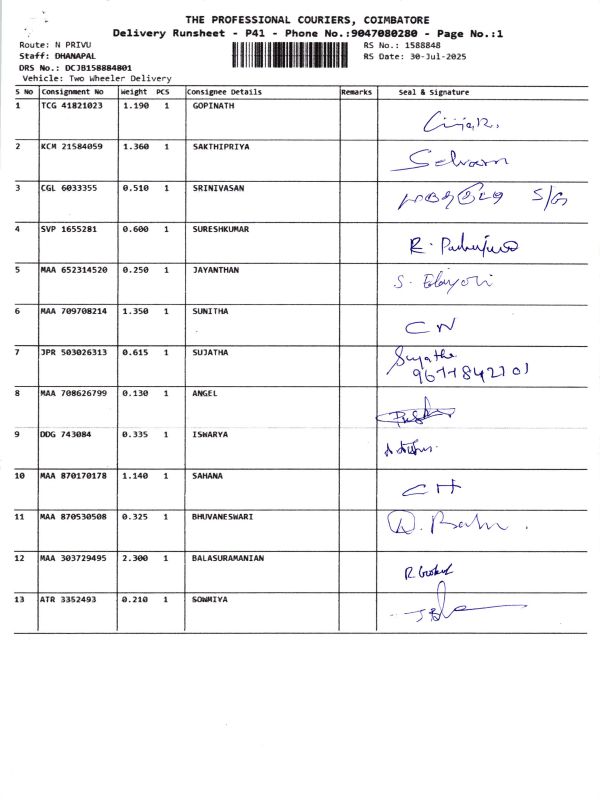 THE PROFESSIONAL COURIERS, COIMBATORE
Delivery Runsheet - P41 - Phone No.:9047080280 - Page No.:1
Route: N PRIVU RS No.: 1588848
Staff: DHANAPAL RS Date: 30-Jul-2025
DRS No.: DCJB158884801
Vehicle: Two Wheeler Delivery
S No Consignment No Weight PCS Consignee Details Remarks Seal & Signature
1 TCG 41821023 1.190 1 GOPINATH
2 KCM 21584059 1.360 1 SAKTHIPRIYA
3 CGL 6033355 0.510 1 SRINIVASAN S/G
4 SVP 1655281 0.600 1 SURESHKUMAR
5 MAA 652314520 0.250 1 JAYANTHAN
6 MAA 709708214 1.350 1 SUNITHA CN
7 JPR 503026313 0.615 1 SUJATHA Sujatha
8 MAA 708626799 0.130 1 ANGEL
9 DDG 743084 0.335 1 ISWARYA
10 MAA 870170178 1.140 1 SAHANA CH
11 MAA 870530508 0.325 1 BHUVANESWARI
12 MAA 303729495 2.300 1 BALASURAMANIAN
13 ATR 3352493 0.210 1 SOWMIYA